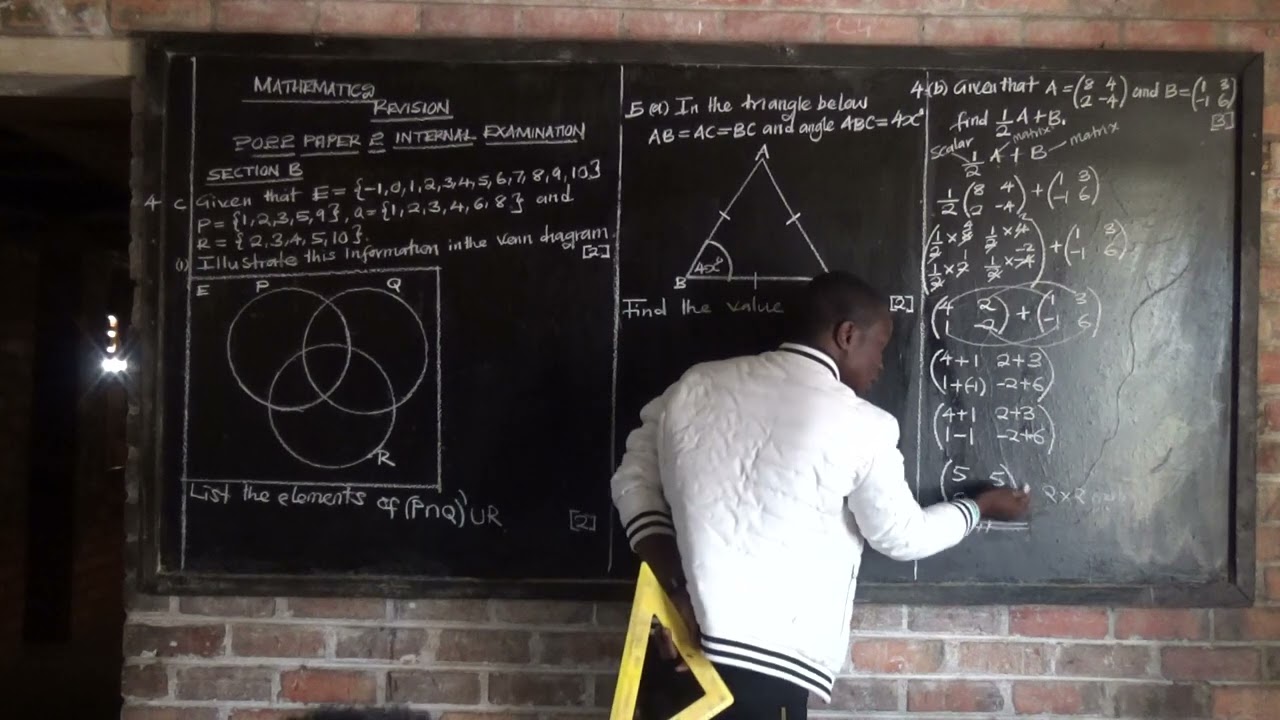 MATHEMATICS
REVISION
2022 PAPER 2 INTERNAL EXAMINATION
SECTION B
4 c Given that E = {-1,0,1,2,3,4,5,6,7,8,9,10}
P = {1,2,3,5,9}, Q = {1,2,3,4,6,8} and
R = {2,3,4,5,10}.
(i) Illustrate this information in the Venn diagram.
[2]
E P Q
R
List the elements of (P∩Q)'∪R
[2]
5 (a) In the triangle below
AB = AC = BC and angle ABC = 4x°
A
4x°
B
Find the value
[2]
4 (b) Given that A = (8 4
2 -4) and B = (1 3
-1 6)
find 1/2 A + B.
[3]
scalar matrix matrix
1/2 A + B
1/2 (8 4
2 -4) + (1 3
-1 6)
(1/2 × 8 4 1/2 × 4 2
1/2 × 2 1 1/2 × -4 -2) + (1 3
-1 6)
(4 2
1 -2) + (1 3
-1 6)
(4+1 2+3
1+(-1) -2+6)
(4+1 2+3
1-1 -2+6)
(5 5)
2×2